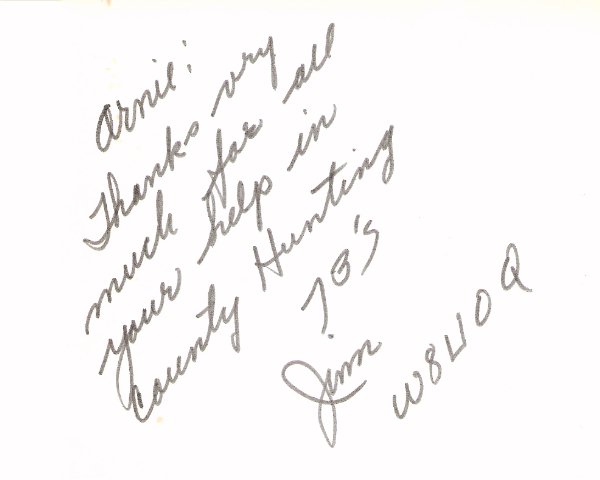 Arnie:
Thanks very
much for all
your help in
County Hunting
73's
Jim
W8UOQ